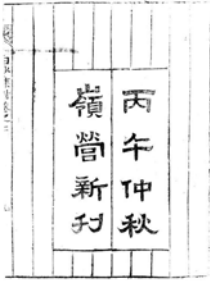 丙午仲秋
嶺營新刊